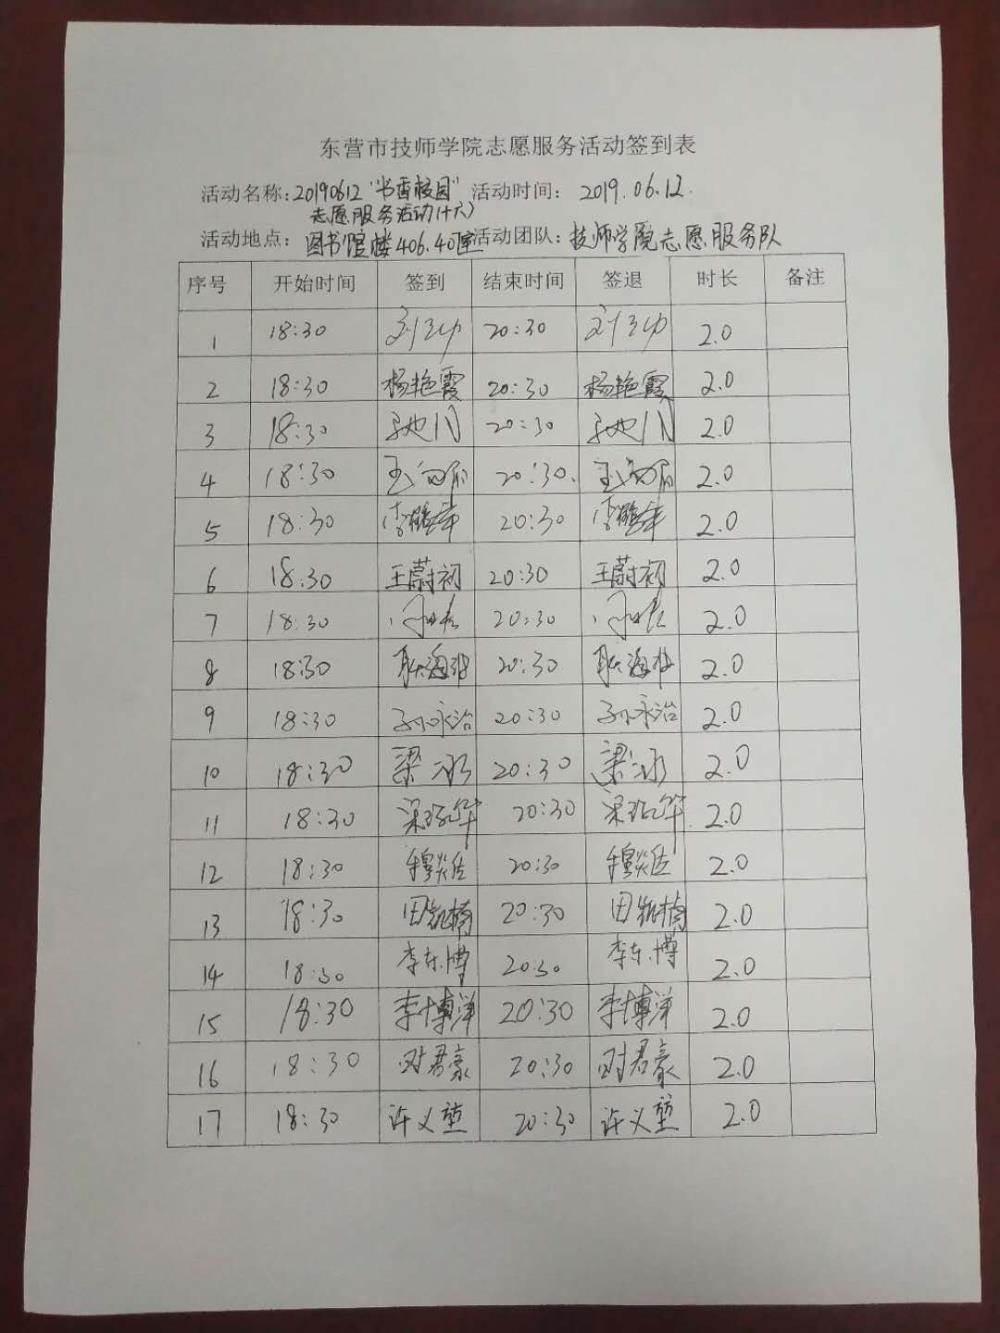 东营市技师学院志愿服务活动签到表
活动名称：20190612“书香校园” 活动时间： 2019.06.12.
志愿服务活动(十六)
活动地点： 图书馆楼406.40 活动团队：技师学院志愿服务队
序号 开始时间 签到 结束时间 签退 时长 备注
1 18:30 20:30 2.0
2 18:30 杨艳霞 20:30 杨艳霞 2.0
3 18:30 20:30 2.0
4 18:30 20:30. 2.0
5 18:30 20:30 2.0
6 18:30 王蔚初 20:30 王蔚初 2.0
7 18:30 20:30 2.0
8 18:30 20:30 2.0
9 18:30 孙永治 20:30 孙永治 2.0
10 18:30 梁冰 20:30 梁冰 2.0
11 18:30 20:30 2.0
12 18:30 20:30 2.0
13 18:30 田凯楠 20:30 田凯楠 2.0
14 18:30 李东博 20:30 李东博 2.0
15 18:30 李博洋 20:30 李博洋 2.0
16 18:30 时君豪 20:30 时君豪 2.0
17 18:30 许义堃 20:30 许义堃 2.0